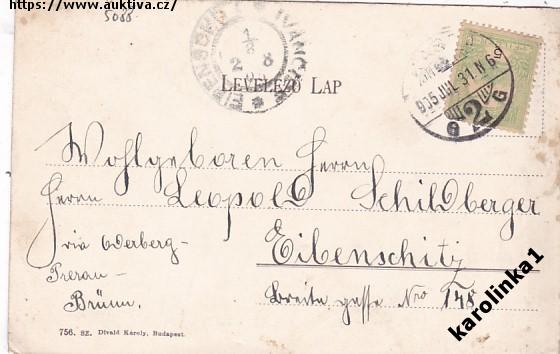 https://www.auktiva.cz/
5088
EIBENSCHITZ * IVANČICE *
1/8 8
2
LEVELEZŐ LAP
905 JUL. 31. N 6
9 2 G
Wohlgeboren Herrn
Herrn Leopold Schildberger
via Oderberg-
Prerau-
Brünn.
Eibenschitz
Breite gasse Nro 148
756. SZ. Divald Károly, Budapest.
karolinka1